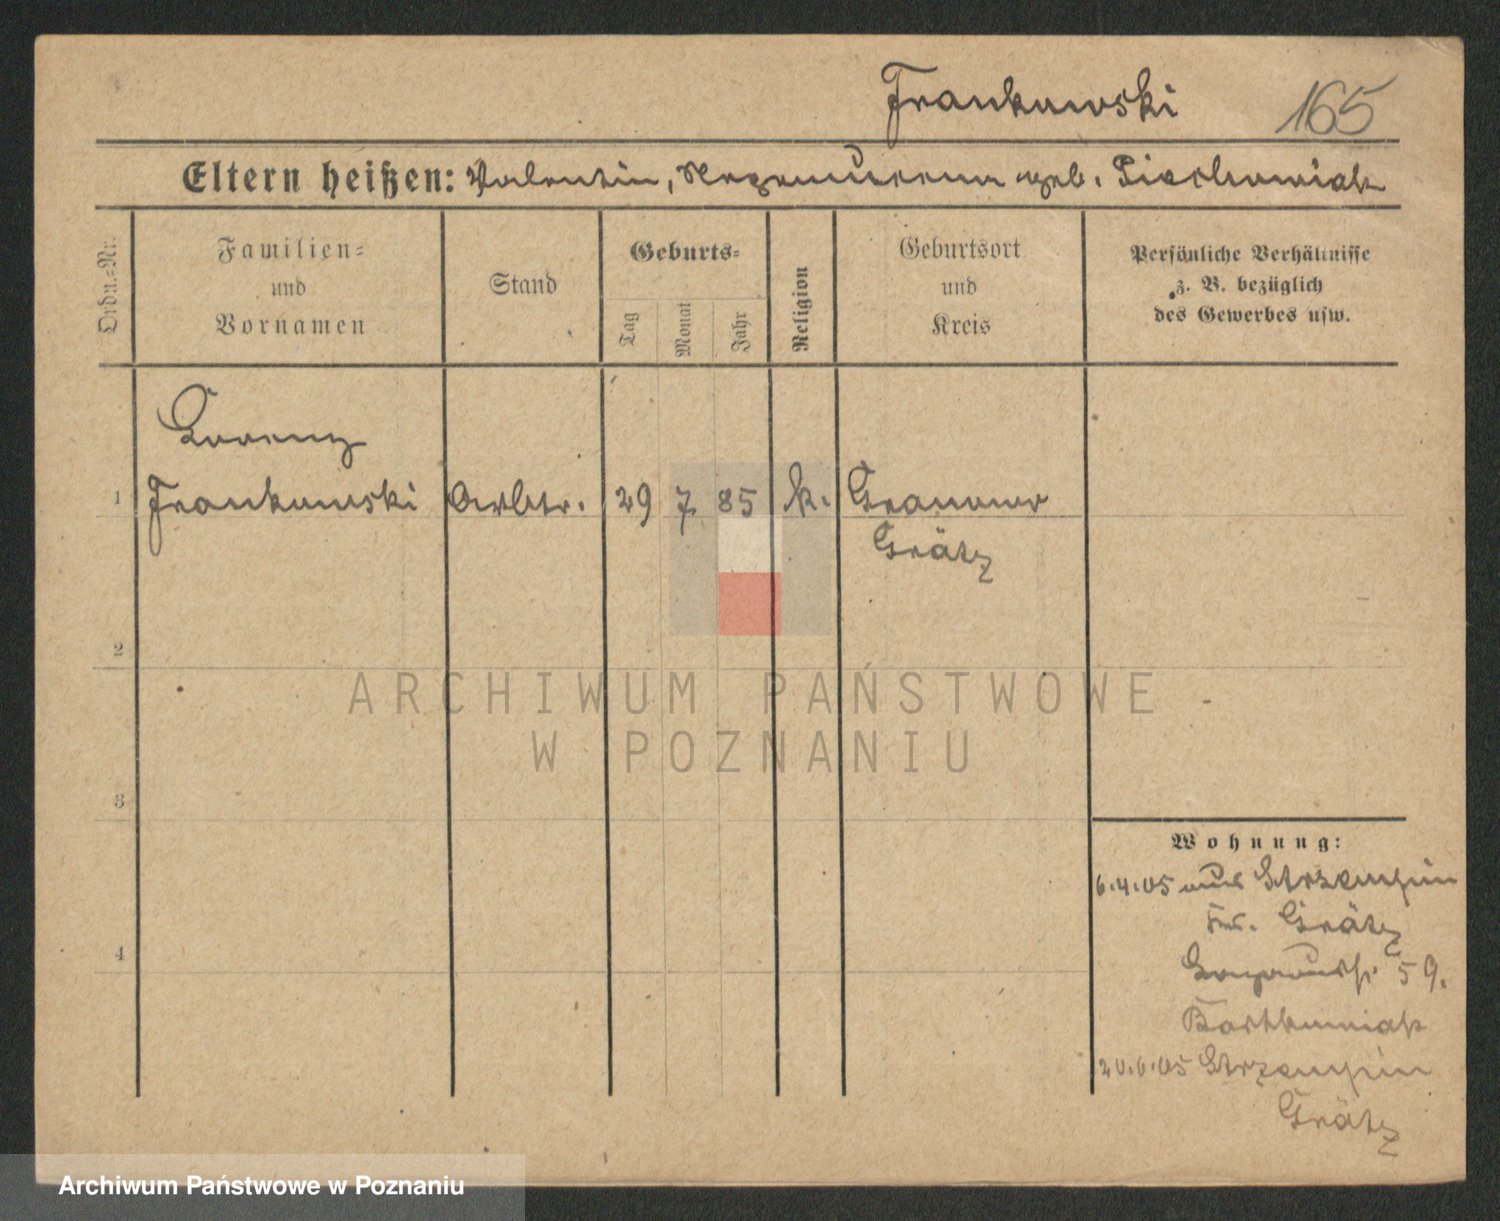 Frankowski 165
Eltern heißen: Valentin, Nepomucena geb. Piechowiak
Ordn.-Nr.
Familien-
und
Vornamen
Stand
Geburts-
Tag
Monat
Jahr
Religion
Geburtsort
und
Kreis
Persönliche Verhältnisse
z. B. bezüglich
des Gewerbes usw.
Lorenz
1 Frankowski Arbtr. 29 7 85 k. Granowo
Grätz
2
ARCHIWUM PAŃSTWOWE
W POZNANIU
3
Wohnung:
6.4.05 aus Strzempin
Kr. Grätz
4
59.
Bartkowiak
20.6.05 Strzempin
Grätz
Archiwum Państwowe w Poznaniu